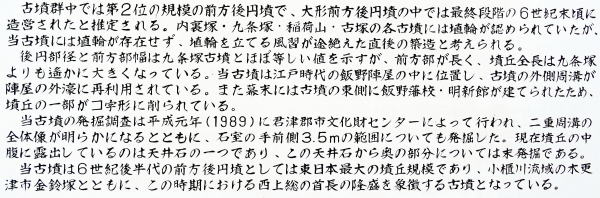 古墳群中では第２位の規模の前方後円墳で、大形前方後円墳の中では最終段階の６世紀末頃に
造営されたと推定される。内裏塚・九条塚・稲荷山・古塚の各古墳には埴輪が認められていたが、
当古墳には埴輪が存在せず、埴輪を立てる風習が途絶えた直後の築造と考えられる。
後円部径と前方部幅は九条塚古墳とほぼ等しい値を示すが、前方部が長く、墳丘全長は九条塚
よりも遥かに大きくなっている。当古墳は江戸時代の飯野陣屋の中に位置し、古墳の外側周溝が
陣屋の外濠に再利用されている。また幕末には古墳の東側に飯野藩校・明新館が建てられたため、
墳丘の一部がコ字形に削られている。
当古墳の発掘調査は平成元年(1989)に君津郡市文化財センターによって行われ、二重周溝の
全体像が明らかになるとともに、石室の手前側3.5mの範囲についても発掘した。現在墳丘の中
腹に露出しているのは天井石の一つであり、この天井石から奥の部分については未発掘である。
当古墳は６世紀後半代の前方後円墳としては東日本最大の墳丘規模であり、小櫃川流域の木更
津市金鈴塚とともに、この時期における西上総の首長の隆盛を象徴する古墳となっている。